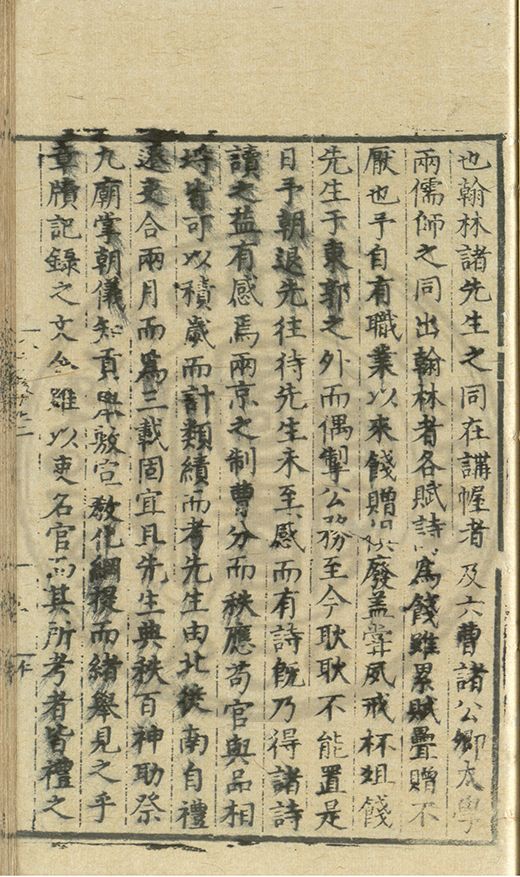 也翰林諸先生之同在講幄者及六曹諸公卿太學
兩儒師之同出翰林者各賦詩為餞雖累賦疊贈不
厭也予自有職業以來餞贈廢蓋嘗夙戒杯俎餞
先生于東郭之外而偶掣公務至今耿耿不能置是
日予朝退先往待先生未至感而有詩旣乃得諸詩
讀之益有感焉兩京之制曹分而秩應苟官與品相
埓皆可以積歲而計類績而考先生由北徙南自禮
還吏合兩月而爲三載固宜且先生典秩百神助祭
九廟掌朝儀知貢舉敦宣敎化綱提而緒舉見之乎
章牘記錄之文今雖以吏名官而其所考者皆禮之